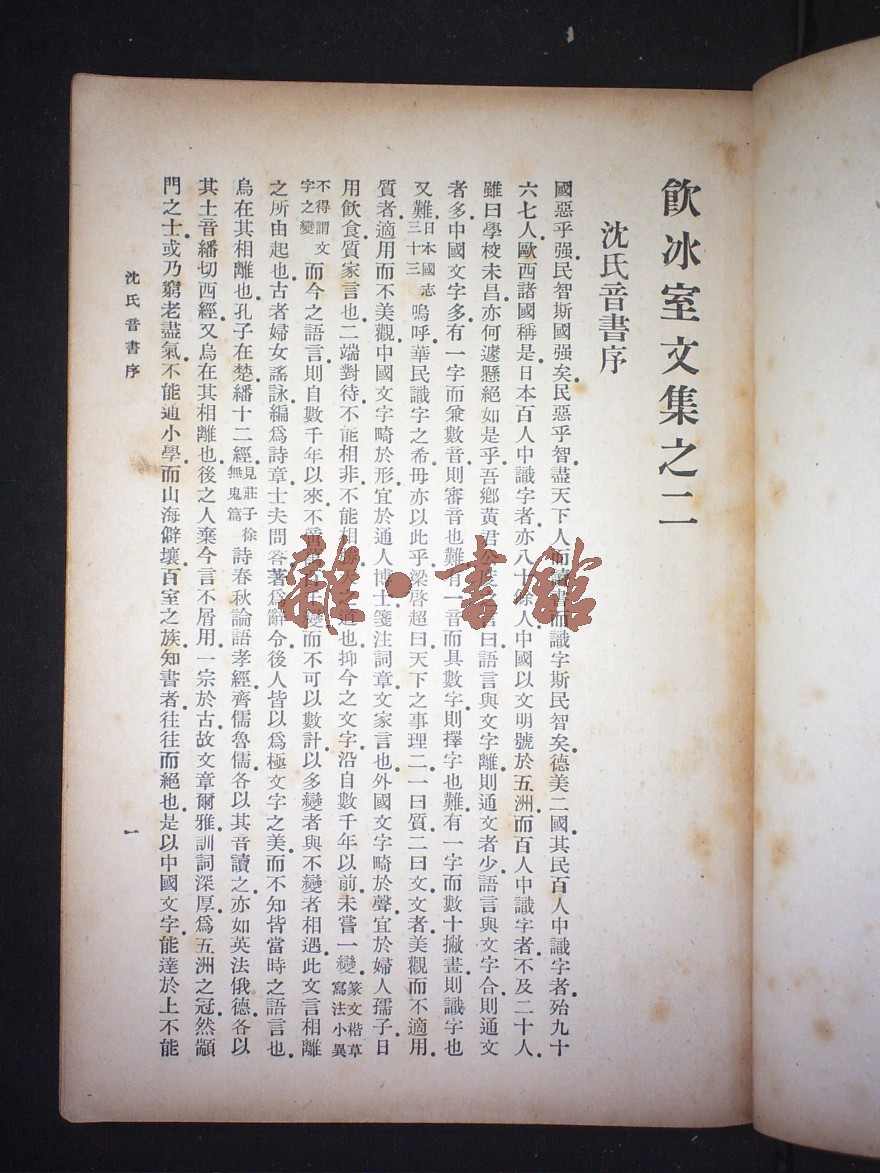 飲冰室文集之二
沈氏音書序
國惡乎强民智斯國强矣民惡乎智盡天下人而讀書而識字斯民智矣德美二國其民百人中識字者殆九十
六七人歐西諸國稱是日本百人中識字者亦八十餘人中國以文明號於五洲而百人中識字者不及二十人
雖曰學校未昌亦何遽懸絕如是乎吾鄉黃君公度之言曰語言與文字離則通文者少語言與文字合則通文
者多中國文字多有一字而兼數音則審音也難有一音而具數字則擇字也難有一字而數十撇畫則識字也
又難日本國志三十三嗚呼華民識字之希毋亦以此乎梁啓超曰天下之事理二一曰質二曰文文者美觀而不適用
質者適用而不美觀中國文字畸於形宜於通人博士箋注詞章文家言也外國文字畸於聲宜於婦人孺子日
用飲食質家言也二端對待不能相非不能相勝天之道也抑今之文字沿自數千年以前未嘗一變篆文楷草寫法小異
不得謂文字之變而今之語言則自數千年以來不啻變而不可以數計以多變者與不變者相遇此文言相離
之所由起也古者婦女謠詠編爲詩章士夫問答著爲辭令後人皆以爲極文字之美而不知皆當時之語言也
烏在其相離也孔子在楚繙十二經見莊子徐無鬼篇詩春秋論語孝經齊儒魯儒各以其音讀之亦如英法俄德各以
其土音繙切西經又烏在其相離也後之人棄今言不屑用一宗於古故文章爾雅訓詞深厚爲五洲之冠然顓
門之士或乃窮老盡氣不能通小學而山海僻壤百室之族知書者往往而絕也是以中國文字能達於上不能
沈氏音書序
一
雜·書館